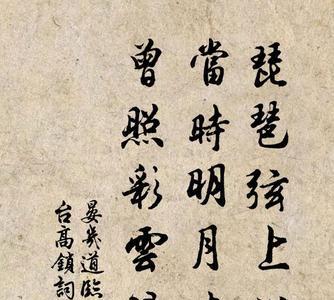 琵琶弦上
當時明月
曾照彩雲
晏幾道臨
台高鎖詞